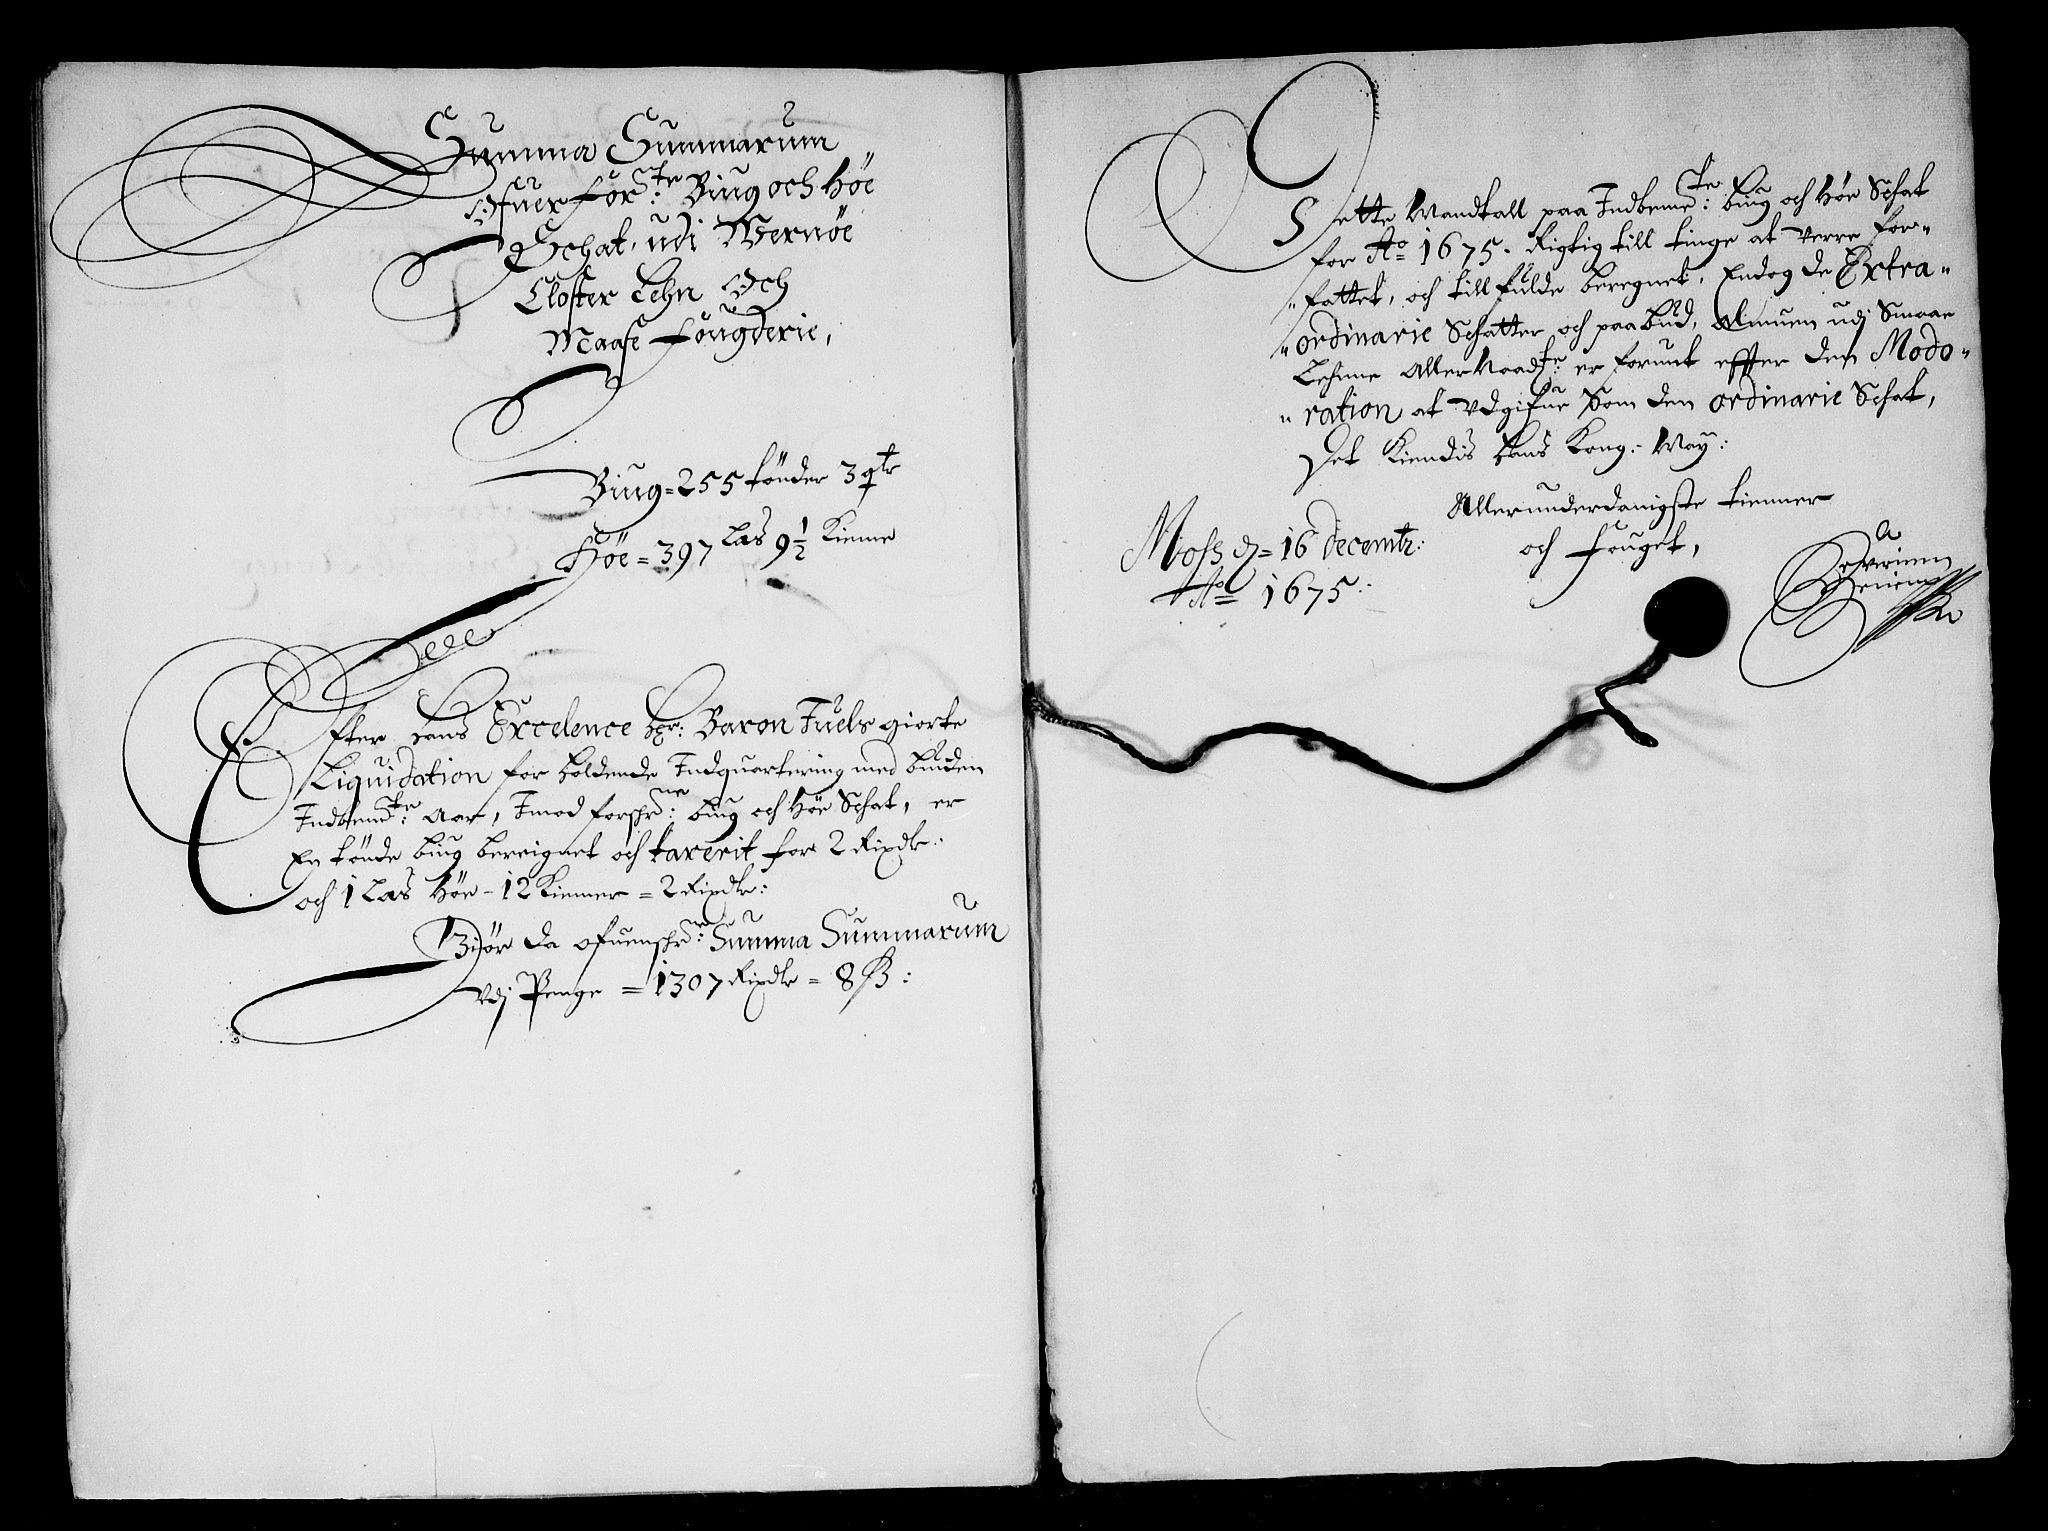 Summa Summarum
Ofuer for:te Biug och Höe
Schat, udi Wernöe
Closter Lehn Och
Maase Fougderie,
Biug = 255 tönder 3 qtr
Höe = 397 Las 9½ Kinne
Efter Hans Excelence Hr: Baron Juels giorte
Liquidation for holdende Indquartering med bunden
Indbem:te Aar, Imod forschr:ne biug och Höe Schat, er
En tönde biug bereignet och taxerit for 2 Rixdlr:
och 1 Las Höe - 12 Kinner = 2 Rixdlr:
Bör da ofuenschr:ne Summa Summarum
Vdj Penge = 1307 Rixdlr = 8 ß:
Dette Mandtall paa Indbem:te biug och Höe Schat
for Ao 1675. Rigtig till tinge at verre for-
fattet, och till fulde beregnet, Endog de Extra-
ordinarie Schatter och paabud, Almuen udj Smaae
Lehnne Aller Naad:te er forunt effter den Modo-
ration at vdgifue som den ordinarie Schat,
Det Kiendis Hans Kong: May:
Allerunderdanigste tienner
och fouget,
Moss d= 16 decembr:
Ao 1675: